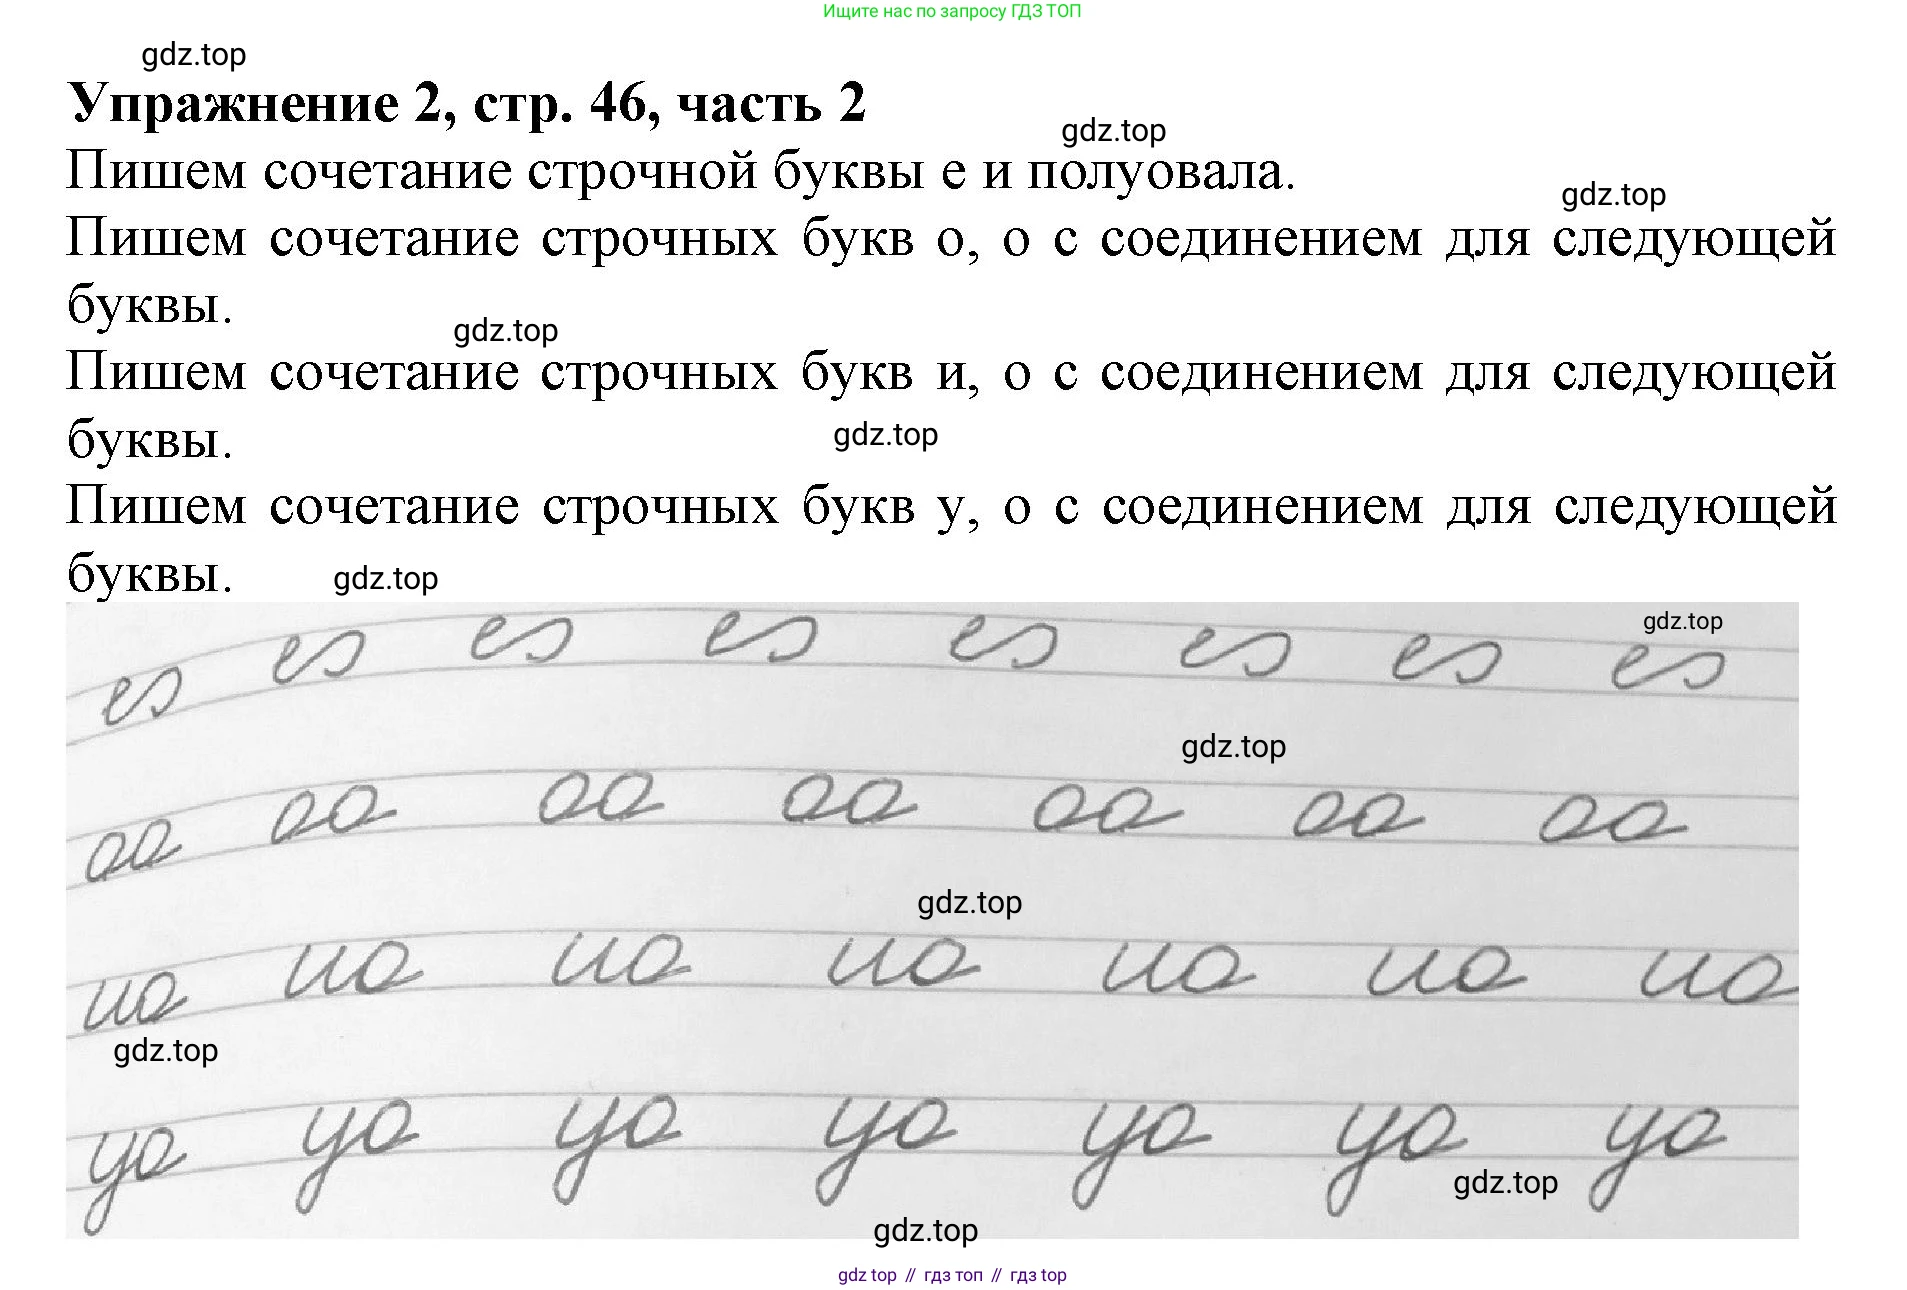 Ищите нас по запросу ГДЗ ТОП
gdz.top
Упражнение 2, стр. 46, часть 2
gdz.top
Пишем сочетание строчной буквы е и полуовала.
gdz.top
Пишем сочетание строчных букв о, о с соединением для следующей
буквы.
gdz.top
Пишем сочетание строчных букв и, о с соединением для следующей
буквы.
gdz.top
Пишем сочетание строчных букв у, о с соединением для следующей
буквы.
gdz.top
gdz.top
еɔ еɔ еɔ еɔ еɔ еɔ еɔ еɔ
gdz.top
оо оо оо оо оо оо оо
gdz.top
ио ио ио ио ио ио ио
gdz.top
уо уо уо уо уо уо уо
gdz.top
gdz.top
gdz top // гдз топ // гдз top